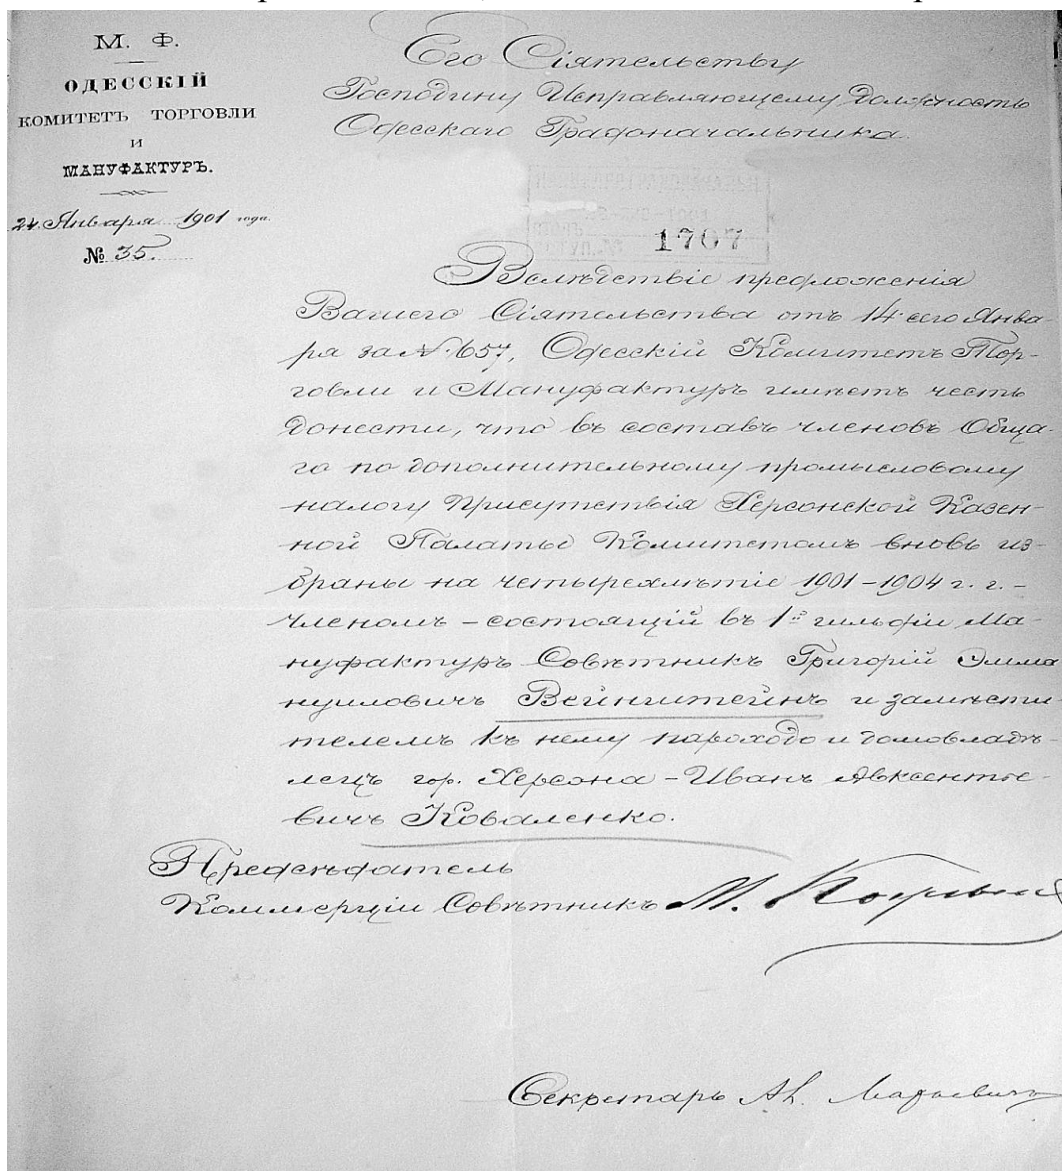 М. Ф.
ОДЕССКІЙ
КОМИТЕТЪ ТОРГОВЛИ
И
МАНУФАКТУРЪ.
24 Января 1901 года.
№ 35.
Его Сіятельству
Господину Исправляющему должность
Одесскаго Градоначальника.
1707
Вслѣдствіе предложенія
Вашего Сіятельства отъ 14 сего Янва-
ря за № 657, Одесскій Комитетъ Тор-
говли и Мануфактуръ имѣетъ честь
донести, что въ составъ членовъ Обща-
го по дополнительному промысловому
налогу Присутствія Херсонской Казен-
ной Палаты Комитетомъ вновь из-
браны на четырехлѣтіе 1901-1904 г. г. -
членомъ - состоящій въ 1й гильдіи Ма-
нуфактуръ Совѣтникъ Григорій Эмма
нуиловичъ Вейнштейнъ и замѣсти
телемъ къ нему пароходо и домовладѣ-
лецъ гор. Херсона - Иванъ Авксентье-
вичъ Коваленко.
Предсѣдатель
Коммерціи Совѣтникъ М.
Секретарь